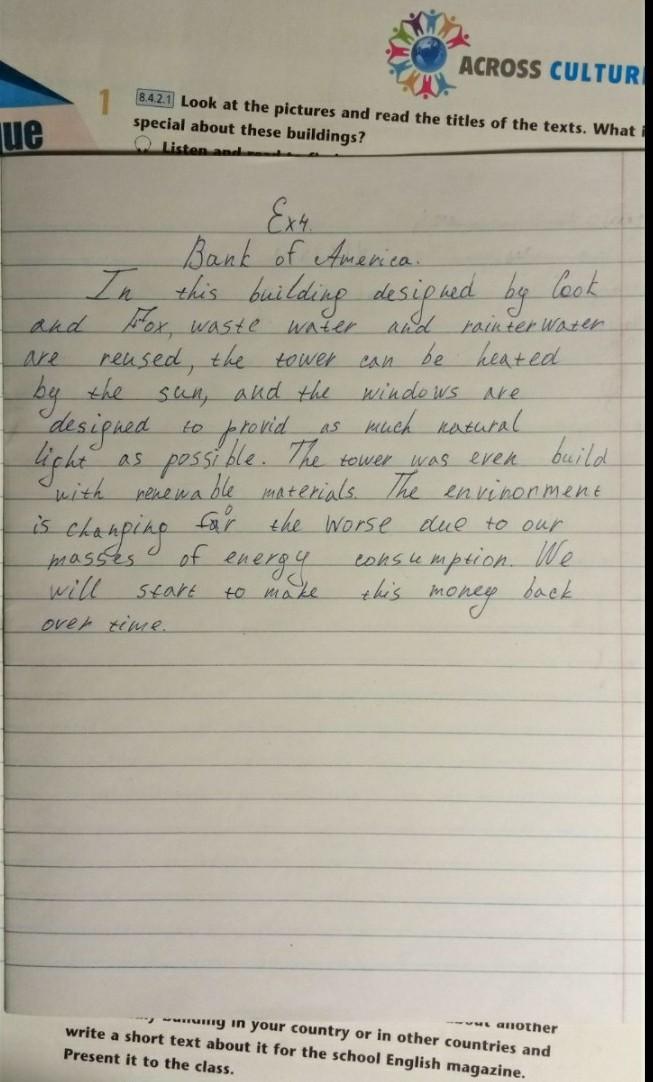 ACROSS CULTUR
ue
1 8.4.2.1 Look at the pictures and read the titles of the texts. What i
special about these buildings?
Listen and read to
Ex4.
Bank of America.
In this building designed by Cook
and Fox, waste water and rainterwater
are reused, the tower can be heated
by the sun, and the windows are
designed to provid as much natural
light as possible. The tower was even build
with renewable materials. The envinorment
is changing for the worse due to our
masses of energy consumption. We
will start to make this money back
over time.
building in your country or in other countries and
another
write a short text about it for the school English magazine.
Present it to the class.